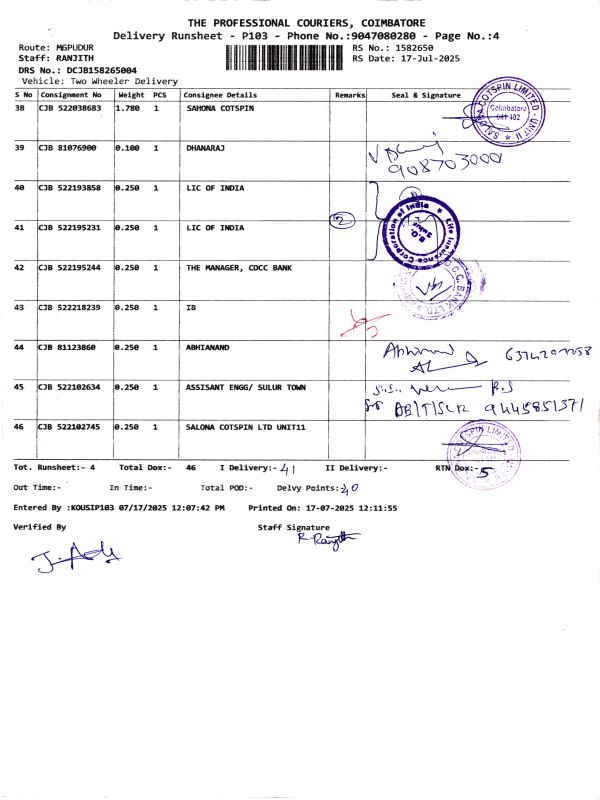 THE PROFESSIONAL COURIERS, COIMBATORE
Delivery Runsheet - P103 - Phone No.:9047080280 - Page No.:4
Route: MGPUDUR RS No.: 1582650
Staff: RANJITH RS Date: 17-Jul-2025
DRS No.: DCJB158265004
Vehicle: Two Wheeler Delivery
S No Consignment No Weight PCS Consignee Details Remarks Seal & Signature
38 CJB 522038683 1.780 1 SAHONA COTSPIN
SALONA COTSPIN LIMITED - UNIT II Coimbatore 641 402
39 CJB 81076900 0.100 1 DHANARAJ
908703000
40 CJB 522193858 0.250 1 LIC OF INDIA
41 CJB 522195231 0.250 1 LIC OF INDIA 2
Life Insurance Corporation of India B.O. Sulur
42 CJB 522195244 0.250 1 THE MANAGER, CDCC BANK
C.C. BANK LTD.
43 CJB 522218239 0.250 1 IB
44 CJB 81123860 0.250 1 ABHIANAND
45 CJB 522102634 0.250 1 ASSISANT ENGG/ SULUR TOWN
9445851371
46 CJB 522102745 0.250 1 SALONA COTSPIN LTD UNIT11
COTSPIN LIMITED
Tot. Runsheet:- 4 Total Dox:- 46 I Delivery:- 41 II Delivery:- RTN Dox:- 5
Out Time:- In Time:- Total POD:- Delvy Points:-
Entered By :KOUSIP103 07/17/2025 12:07:42 PM Printed On: 17-07-2025 12:11:55
Verified By Staff Signature
R Ranjith